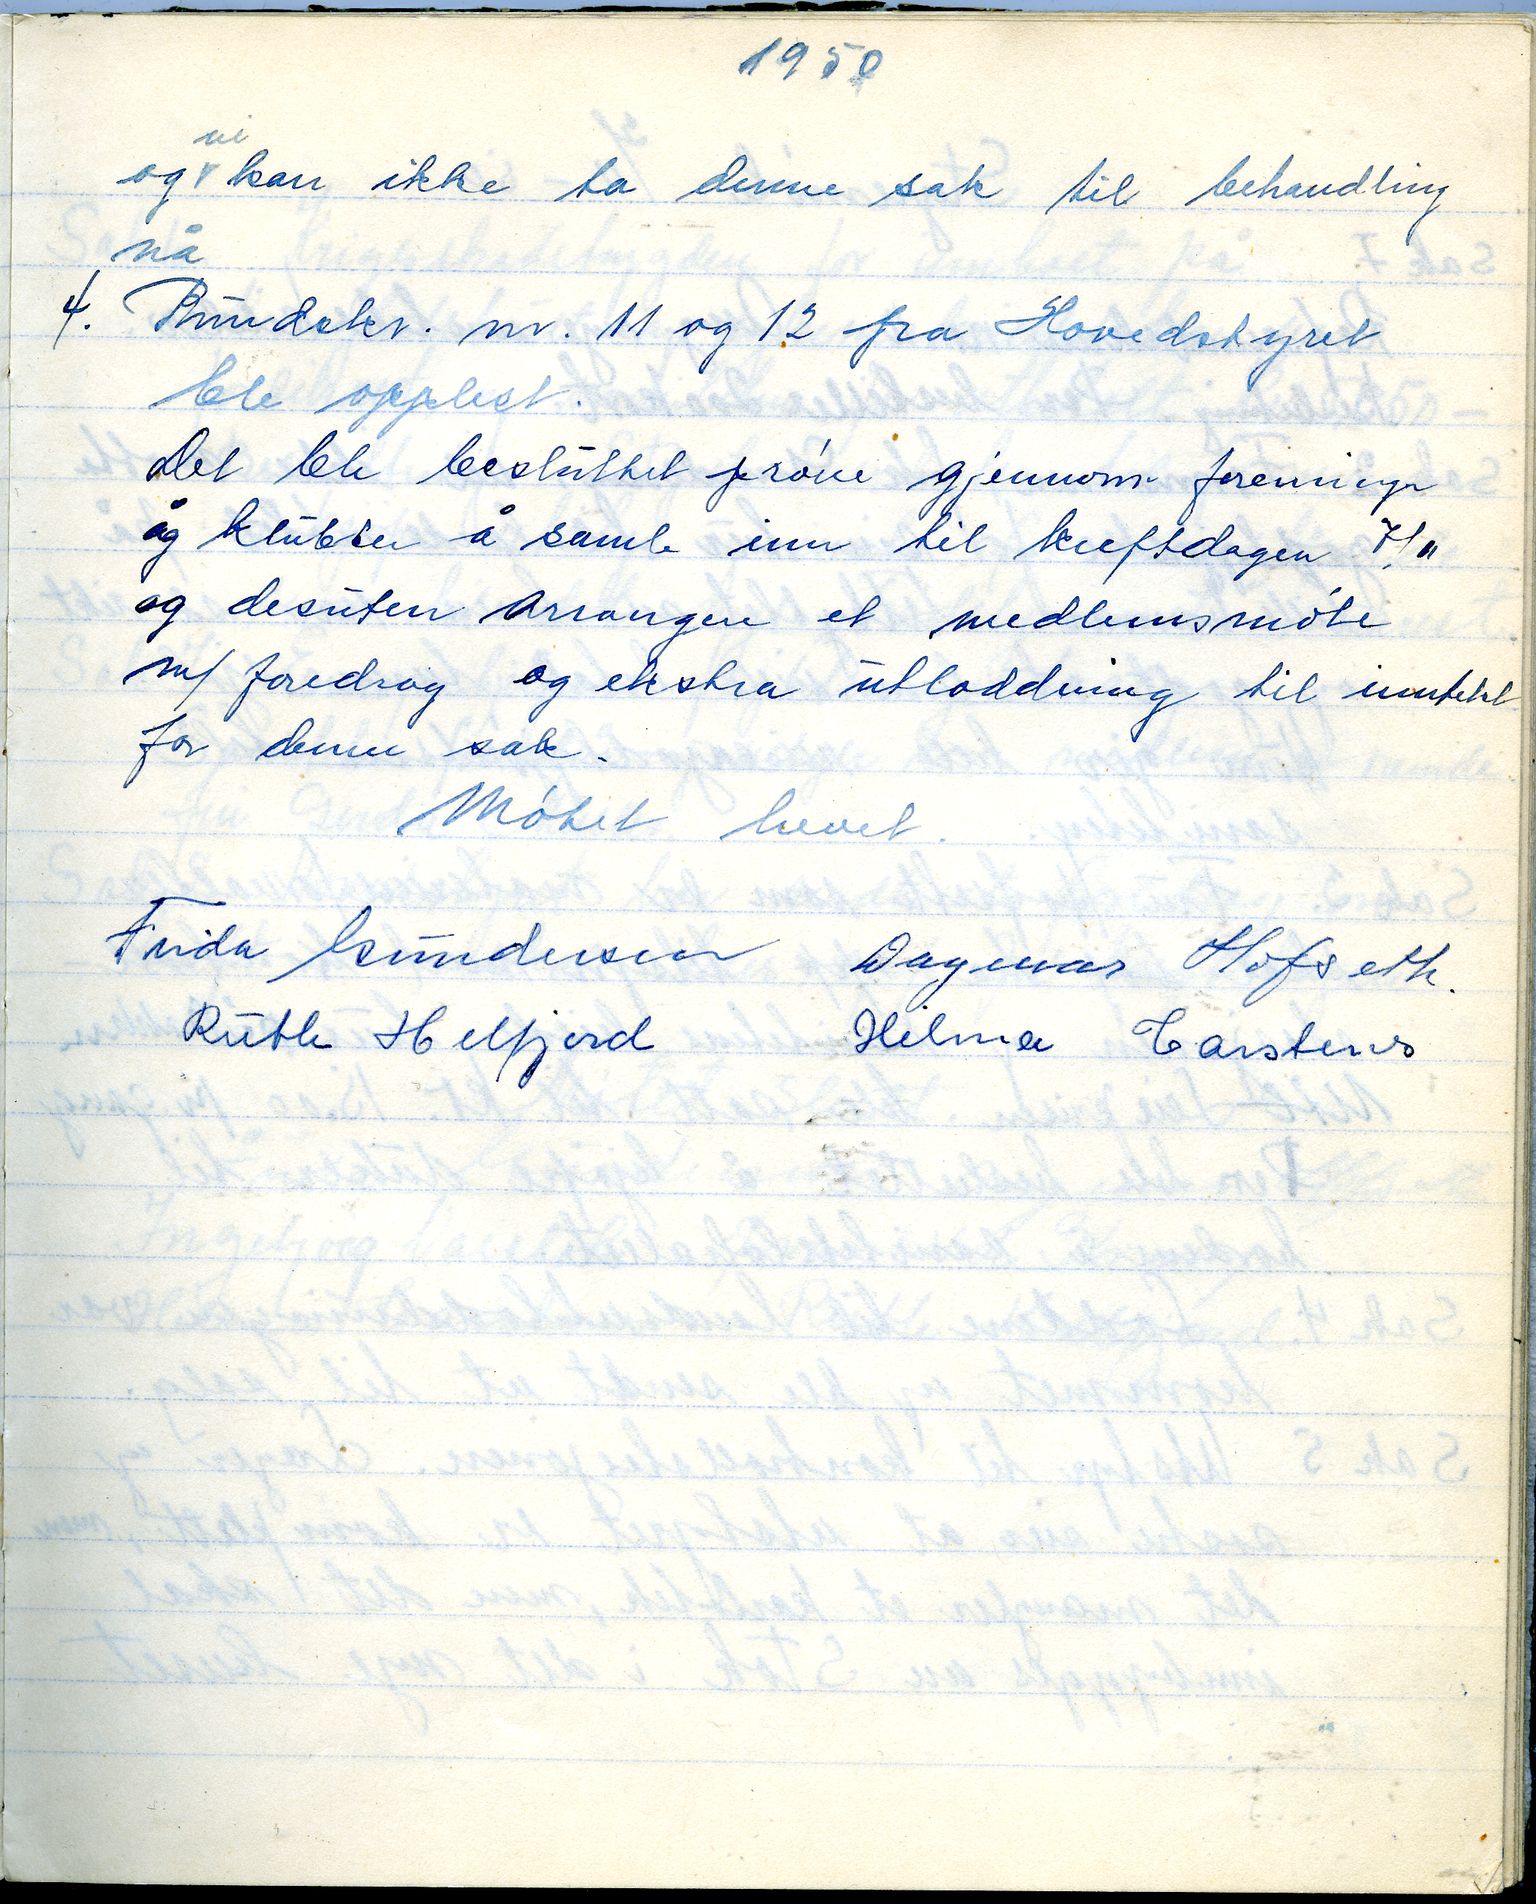 1950
og vi kan ikke ta denne sak til behandling
nå
4. Rundskr. nr. 11 og 12 fra Hovedstyret
ble opplest.
Det ble besluttet prøve gjennom foreninger
og klubber å samle inn til kreftdagen 7/11
og desuten arrangere et medlemsmøte
m/ foredrag og ekstra utloddning til inntekt
for denne sak.
Møtet hevet.
Frida Gundersen Dagmar Hofseth.
Ruth Helfjord Hilma Carstens